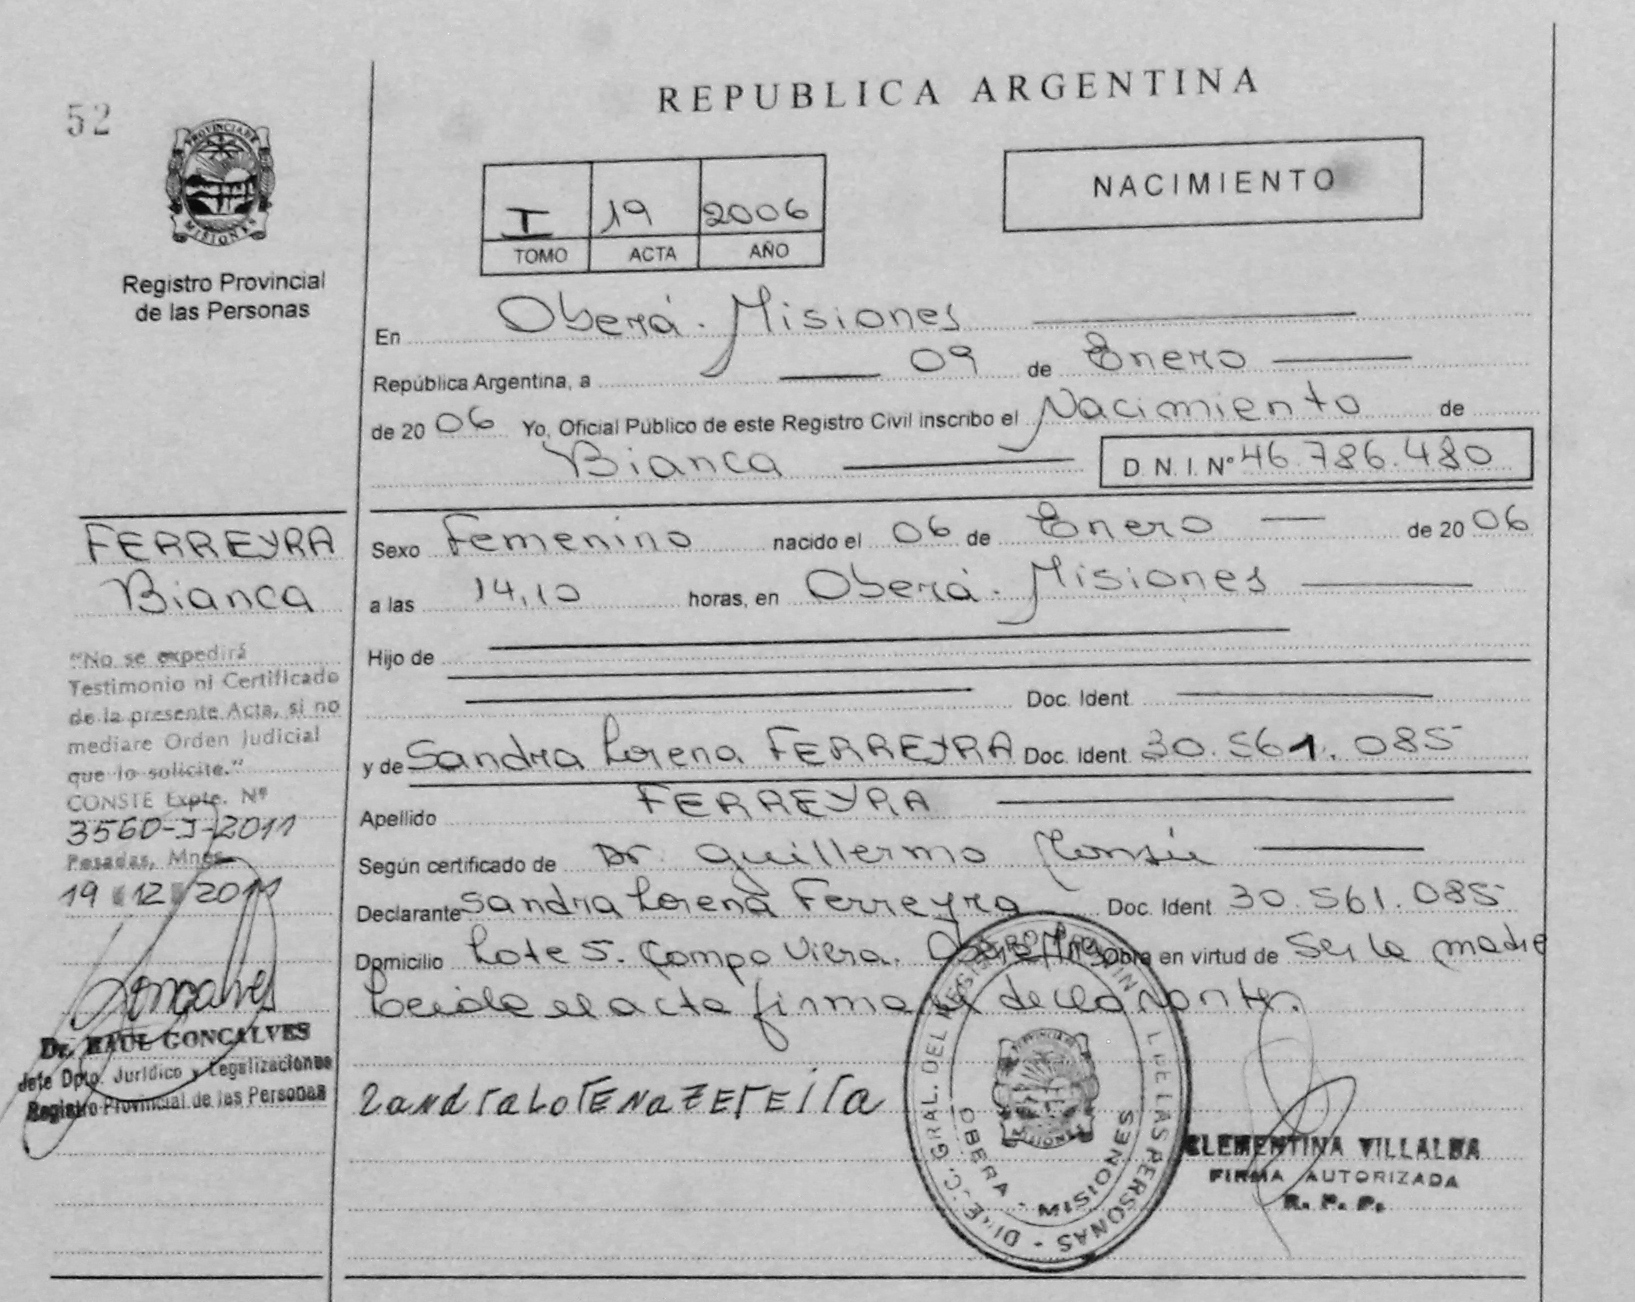 REPUBLICA ARGENTINA
52
PROVINCIA DE
MISIONES
Registro Provincial
de las Personas
I 19 2006
TOMO ACTA AÑO
NACIMIENTO
En Oberá. Misiones
República Argentina, a 09 de Enero
de 20 06 Yo, Oficial Público de este Registro Civil inscribo el Nacimiento de
Bianca D. N. I. Nº 46.786.480
FERREYRA
Bianca
"No se expedirá
Testimonio ni Certificado
de la presente Acta, si no
mediare Orden Judicial
que lo solicite."
CONSTE Expte. Nº
3560-J-2011
Posadas, Mnes
19 12 2011
Goncalves
Dr. RAUL GONCALVES
Jefe Dpto. Jurídico y Legalizaciones
Registro Provincial de las Personas
Sexo Femenino nacido el 06 de Enero de 20 06
a las 14,10 horas, en Oberá. Misiones
Hijo de
Doc. Ident.
y de Sandra Lorena FERREYRA Doc. Ident. 30.561.085
Apellido FERREYRA
Según certificado de Dr. Guillermo
Declarante Sandra Lorena Ferreyra Doc. Ident 30.561.085
Domicilio Lote 5. Campo Viera. Oberá Mnes Obra en virtud de Ser la madre
Leida el acta firma la declarante.
DIREC. GRAL. DEL REGISTRO PROVIN L DE LAS PERSONAS
PROVINCIA DE
MISIONES
OBERA - MISIONES
CLEMENTINA VILLALBA
FIRMA AUTORIZADA
R. P. P.